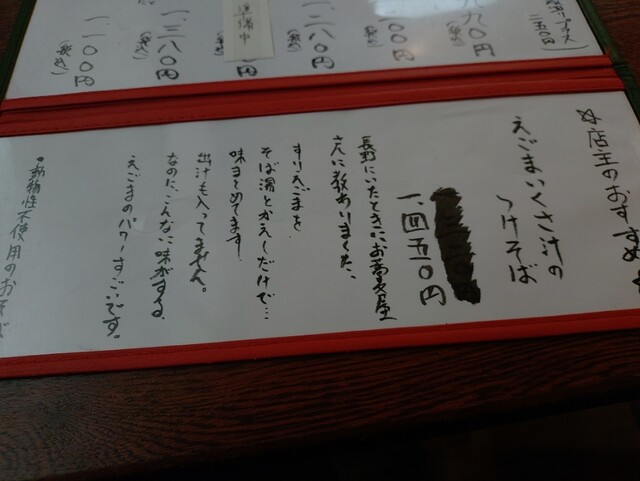 九九〇円
(税込)
一〇〇円
(税込)
一、二八〇円
(税込)
準備中
一、三八〇円
(税込)
一、一〇〇円
(税込)
☆店主のおすすめ☆
えごまいくさ汁の
つけそば
一、四五〇円
長野にいたときにお蕎麦屋
さんに教わりました。
すりえごまを
そば湯とかえしだけで…
味まとめてます!
出汁も入ってません。
なのに、こんなに味がする、
えごまのパワーすごいです。
●動物性不使用のおそば